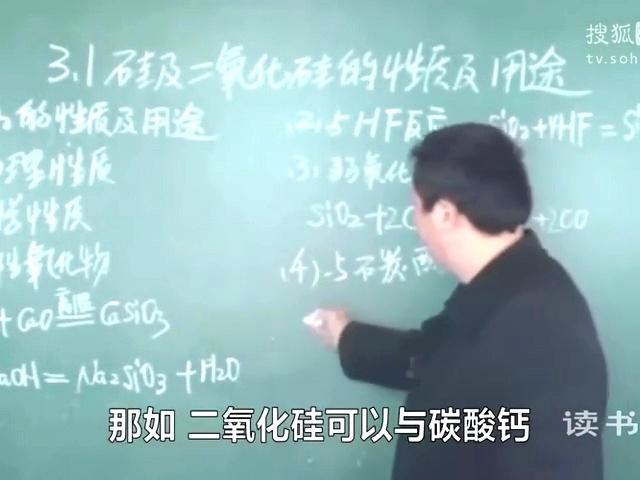 搜狐
tv.soh
3.1硅及二氧化硅的性质及用途
的性质及用途
理性质
学性质
性氧化物
+CaO 高温 CaSiO₃
aOH=Na₂SiO₃+H₂O
(2).与HF反应 SiO₂+4HF=Si
(3).弱氧化
SiO₂+2C +2CO
(4).与石灰
那如 二氧化硅可以与碳酸钙
读书